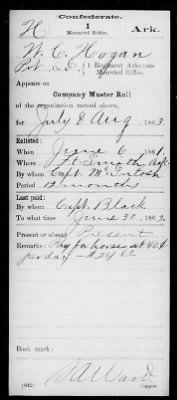 Confederate.
H 1 Ark.
Mounted Rifles.
W. C. Hogan
Pvt, Co. G, 1 Regiment Arkansas
Mounted Rifles.
Appears on
Company Muster Roll
of the organization named above,
for July & Aug, 1863.
Enlisted:
When June 6, 1861.
Where Ft. Smith Ark.
By whom Capt. McIntosh
Period 12 months
Last paid:
By whom Capt. Black
To what time June 30, 1863.
Present or absent Present
Remarks: Pay for horse at 40¢
per day — $24
Book mark:
(642) Copyist.